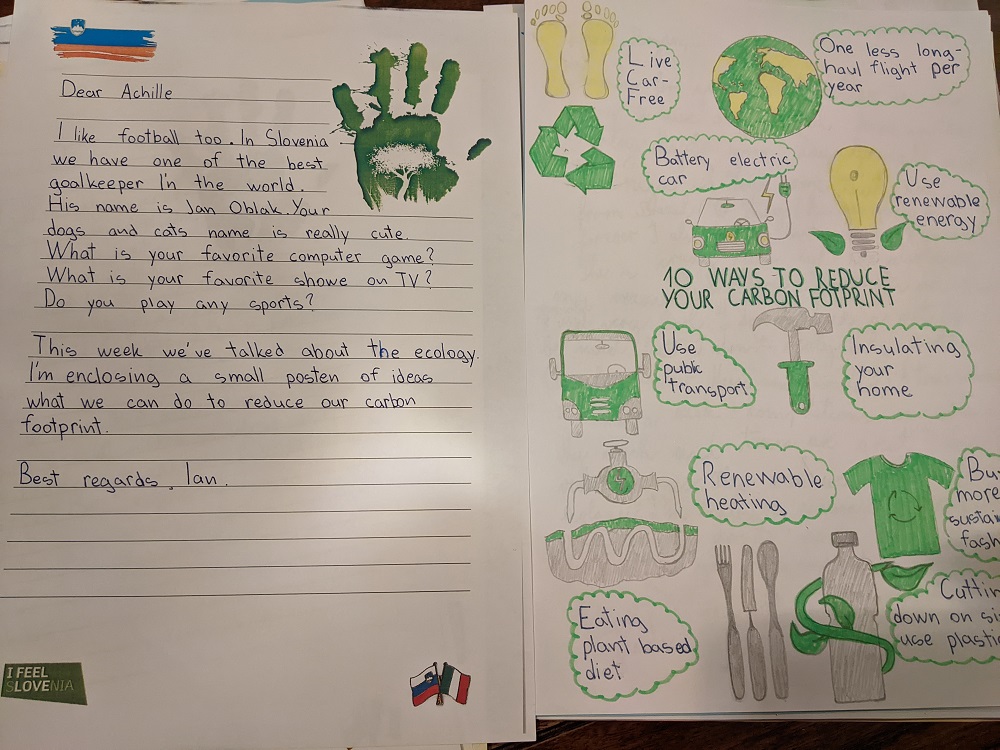 Dear Achille
I like football too. In Slovenia
we have one of the best
goalkeeper In the world.
His name is Jan Oblak. Your
dogs and cats name is really cute.
What is your favorite computer game?
What is your favorite showe on TV?
Do you play any sports?
This week we've talked about the ecology.
I'm enclosing a small posten of ideas
what we can do to reduce our carbon
footprint.
Best regards, Ian.
I FEEL
SLOVENIA
Live
Car-
Free
One less long-
haul flight per
year
Battery electric
car
Use
renewable
energy
10 WAYS TO REDUCE
YOUR CARBON FOTPRINT
Use
public
transport
Insulating
your
home
Renewable
heating
Bu
more
sustai
fash
Eating
plant based
diet
Cuttin
down on si
use plastic